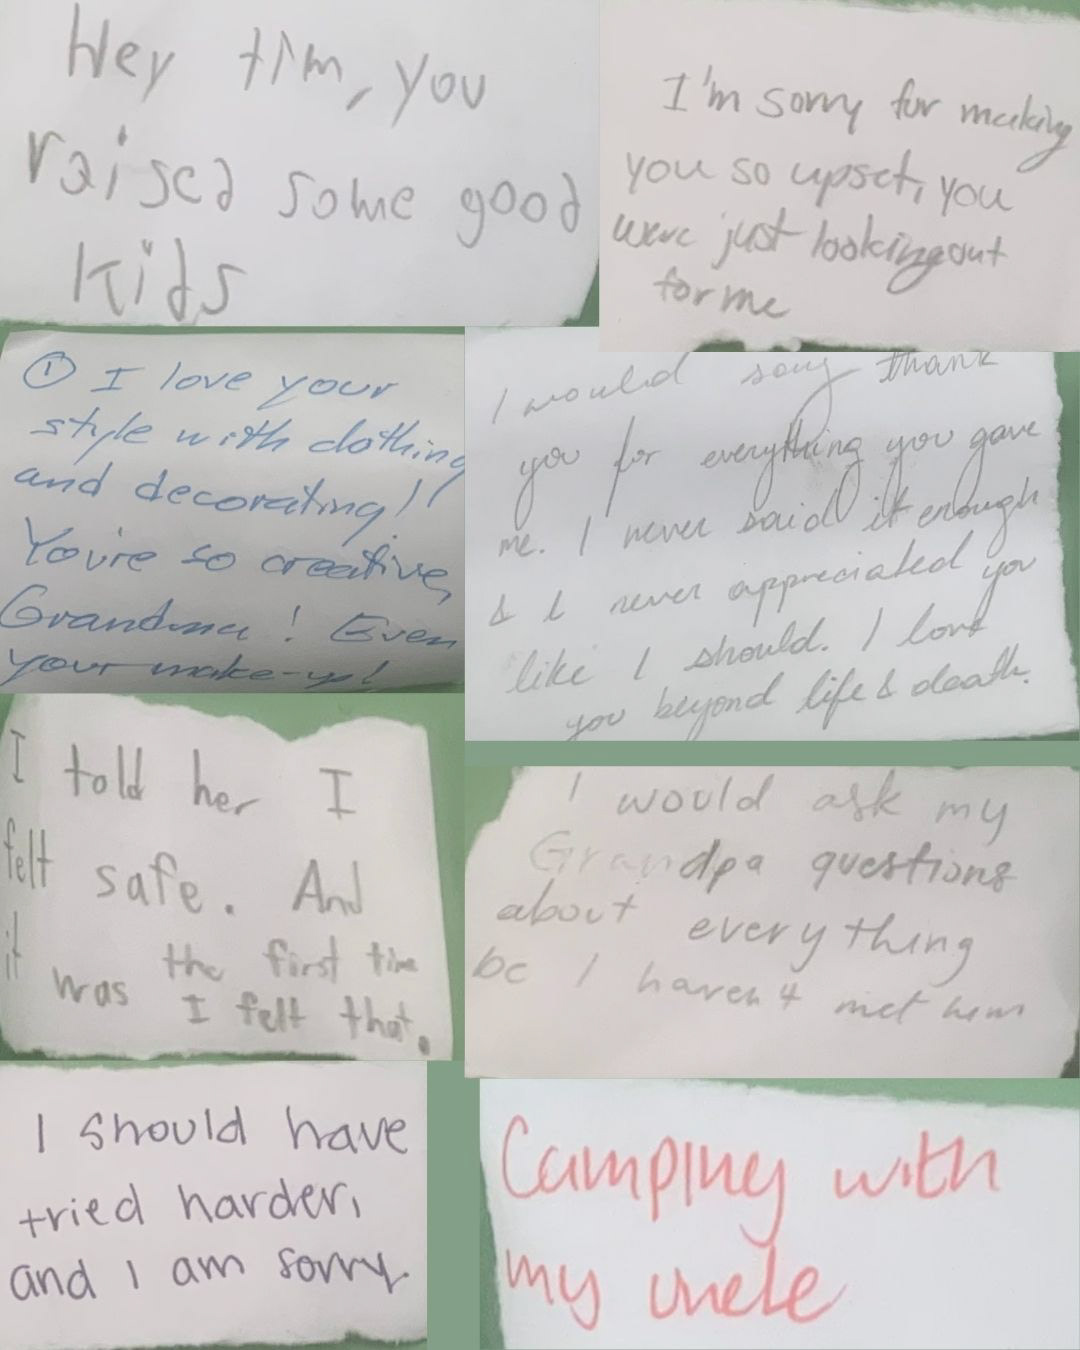 Hey tim, you
raised some good
kids
I'm sorry for making
you so upset, you
were just looking out
for me
① I love your
style with clothing
and decorating!!
You're so creative,
Grandma! Even
your make-up!
I would say thank
you for everything you gave
me. I never said it enough
& I never appreciated you
like I should. I love
you beyond life & death.
I told her I
felt safe. And
it was the first time
I felt that.
I would ask my
Grandpa questions
about everything
bc I haven't met him
I should have
tried harder,
and I am sorry.
Camping with
my uncle